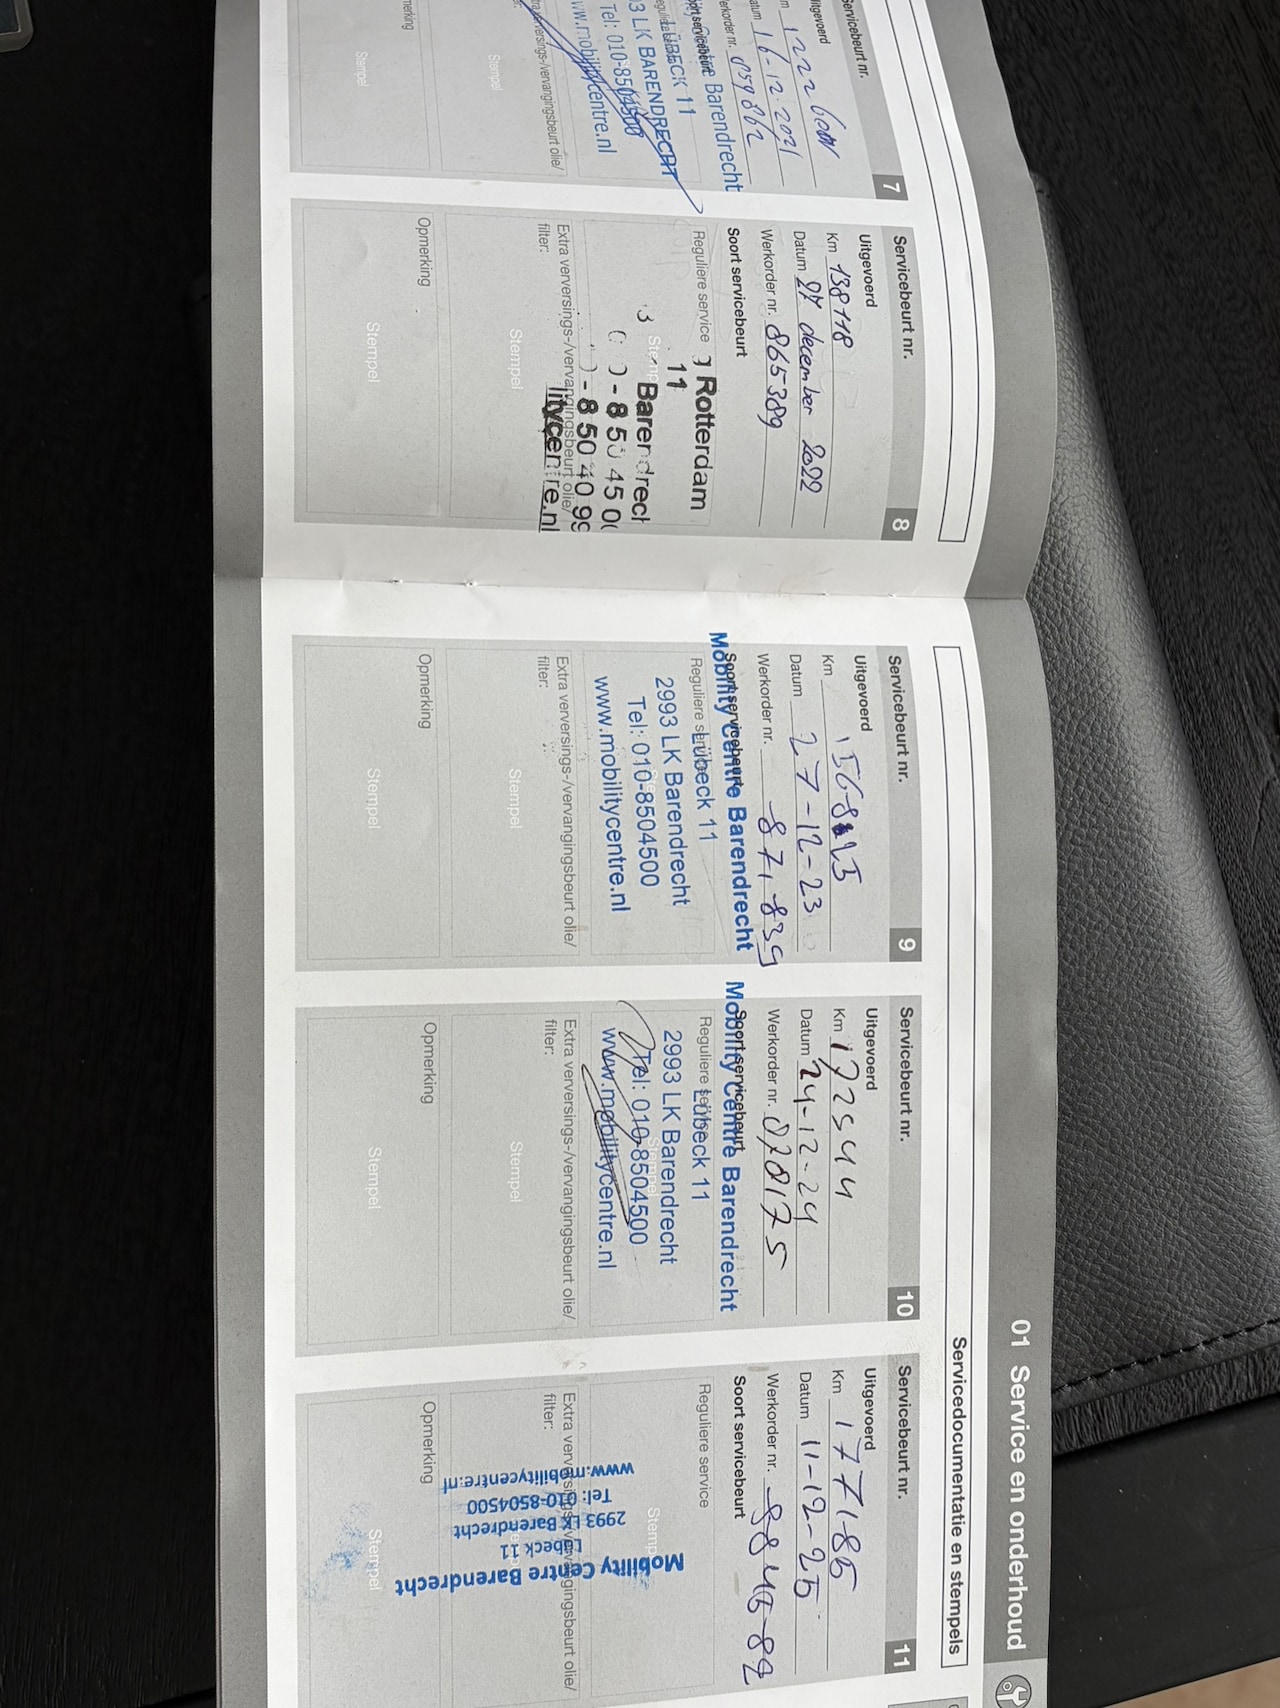 01 Service en onderhoud
Servicedocumentatie en stempels
Servicebeurt nr. 7
Uitgevoerd
Datum 16-12-2021
Werkorder nr. 059862
Soort servicebeurt
Barendrecht
ÜBECK 11
LK BARENDRECHT
Tel: 010-8504500
www.mobilitycentre.nl
Extra verversings-/vervangingsbeurt olie/
Stempel
Stempel
Servicebeurt nr. 8
Uitgevoerd
Km 138118
Datum 27 december 2022
Werkorder nr. 865389
Soort servicebeurt
Reguliere service
Rotterdam
11
Barendrech
Stempel
-8504099
litycentre.nl
Extra verversings-/vervangingsbeurt olie/
filter:
Stempel
Opmerking
Stempel
Servicebeurt nr. 9
Uitgevoerd
Km
Datum 27-12-23
Werkorder nr. 871839
Soort servicebeurt
Mobility Centre Barendrecht
Reguliere service
Lübeck 11
2993 LK Barendrecht
Tel: 010-8504500
www.mobilitycentre.nl
Extra verversings-/vervangingsbeurt olie/
filter:
Stempel
Opmerking
Stempel
Servicebeurt nr. 10
Uitgevoerd
Km 172544
Datum 24-12-24
Werkorder nr. 0878175
Soort servicebeurt
Mobility Centre Barendrecht
Reguliere service
Lübeck 11
2993 LK Barendrecht
Stempel
Tel: 010-8504500
www.mobilitycentre.nl
Extra verversings-/vervangingsbeurt olie/
filter:
Stempel
Opmerking
Stempel
Servicebeurt nr. 11
Uitgevoerd
Km 177185
Datum 11-12-25
Werkorder nr.
Soort servicebeurt
Reguliere service
Stempel
Extra verversings-/vervangingsbeurt olie/
filter:
Mobility Centre Barendrecht
Lübeck 11
2993 LK Barendrecht
Tel: 010-8504500
www.mobilitycentre.nl
Opmerking
Stempel